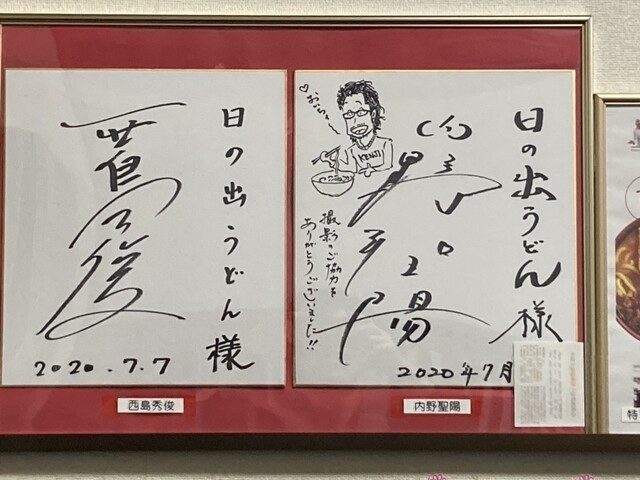 日の出うどん様
2020.7.7
西島秀俊
日の出うどん様
おいちぃ〜
KENJI
撮影のご協力を
ありがとうございました!!
2020年7月
内野聖陽
特